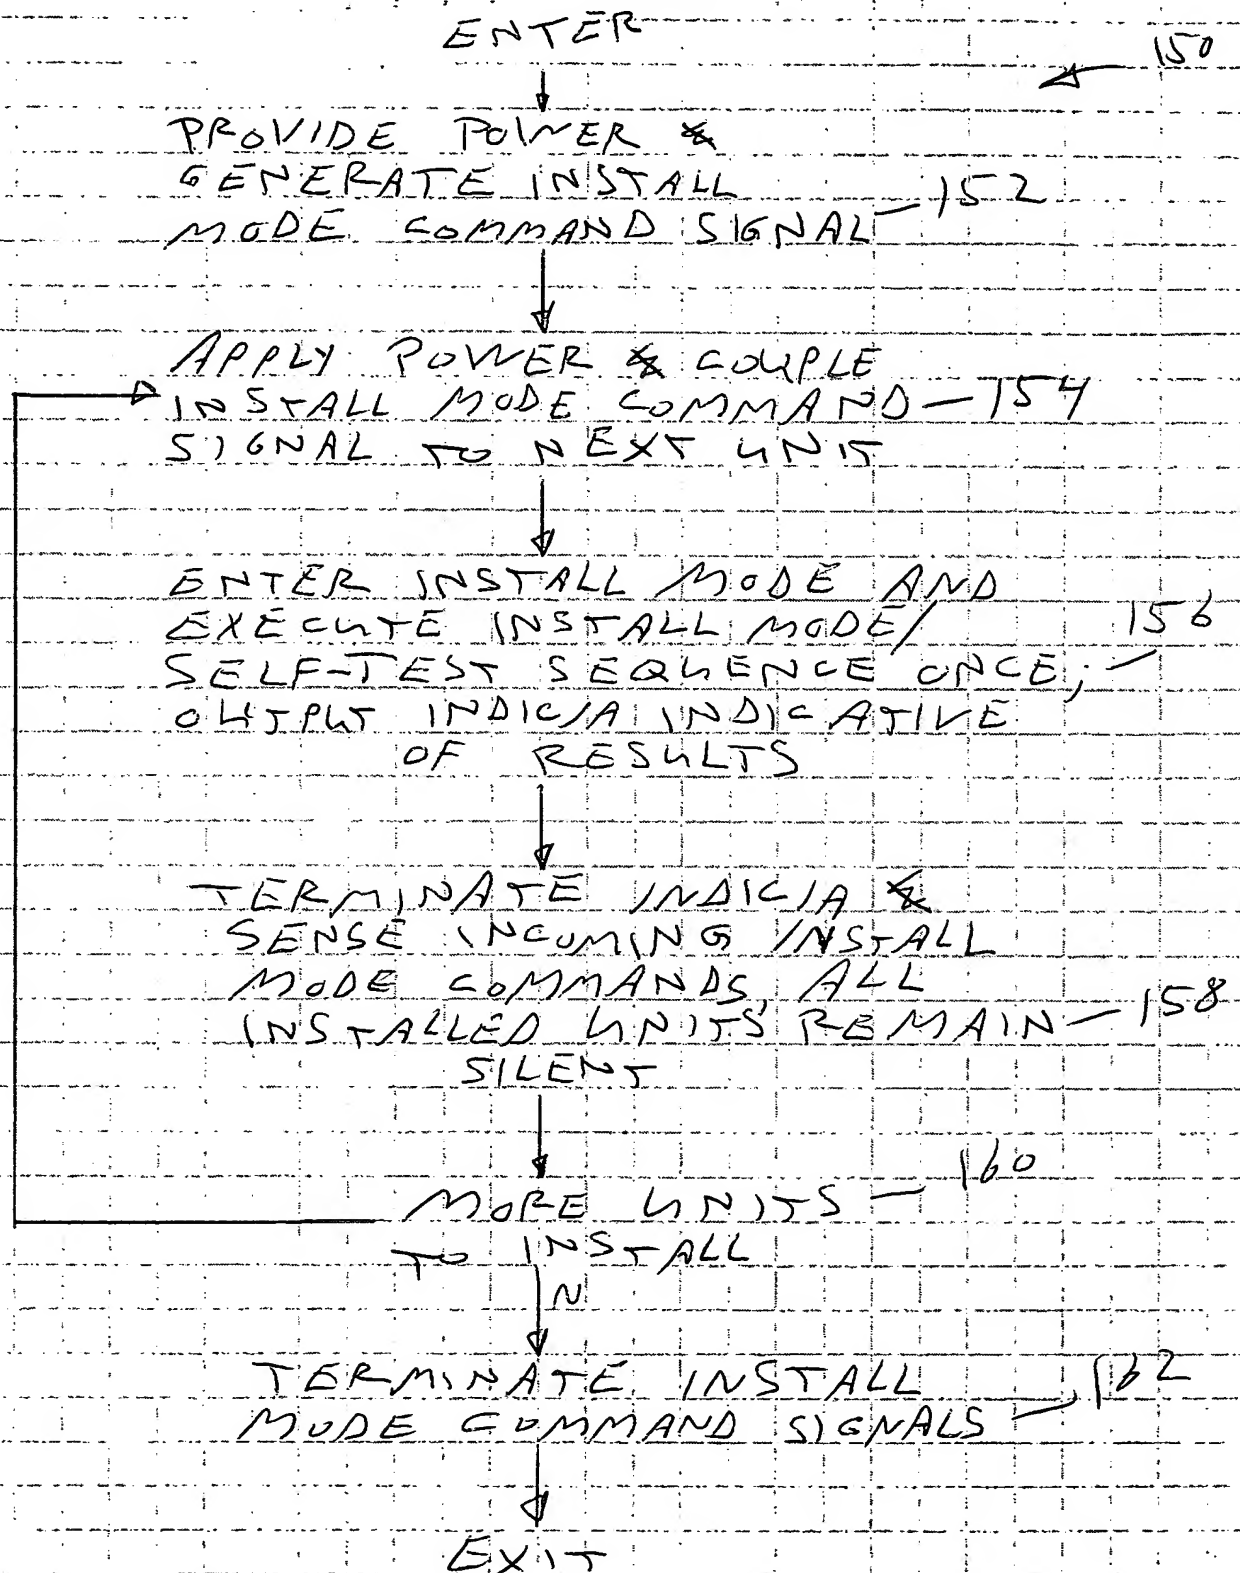 ENTER
150
PROVIDE POWER &
GENERATE INSTALL
MODE COMMAND SIGNAL - 152
APPLY POWER & COUPLE
INSTALL MODE COMMAND - 154
SIGNAL TO NEXT UNIT
ENTER INSTALL MODE AND
EXECUTE INSTALL MODE/ 156
SELF-TEST SEQUENCE ONCE;
OUTPUT INDICIA INDICATIVE
OF RESULTS
TERMINATE INDICIA &
SENSE INCOMING INSTALL
MODE COMMANDS, ALL
INSTALLED UNITS REMAIN - 158
SILENT
MORE UNITS - 160
TO INSTALL
N
TERMINATE INSTALL 162
MODE COMMAND SIGNALS
EXIT